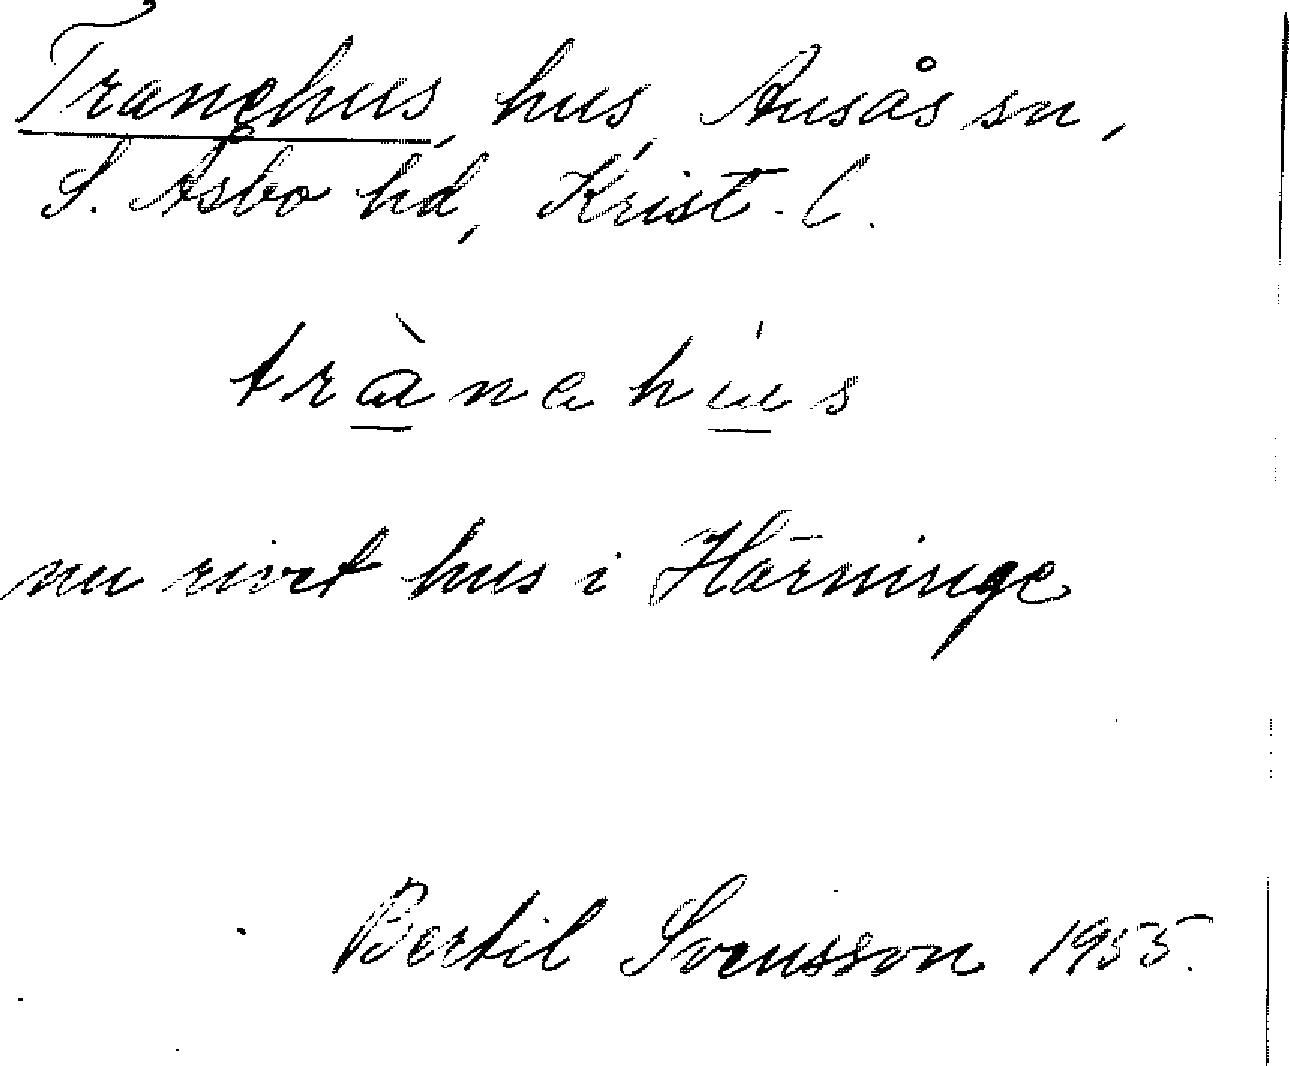 Tranehus, hus, Ausås sn,
S. Åsbo hd, Krist. l.
trànahús
nu rivet hus i Härninge
Bertil Svensson 1955.